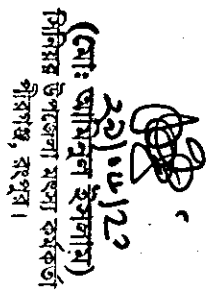 (মোঃ আমিনুল ইসলাম)
সিনিয়র উপজেলা মৎস্য কর্মকর্তা
পীরগঞ্জ, রংপুর।